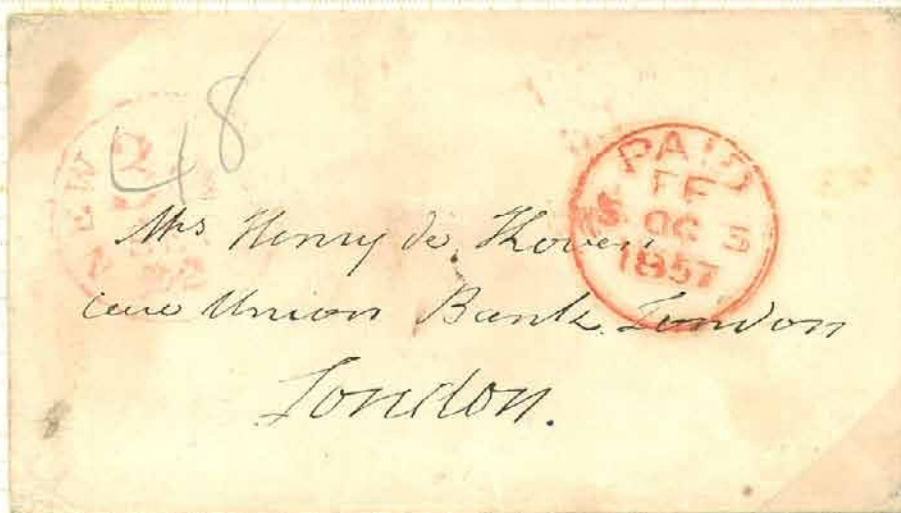 48
NEW
PAID
OC 5
1857
Mrs Henry de Koven
care Union Bank London
London.